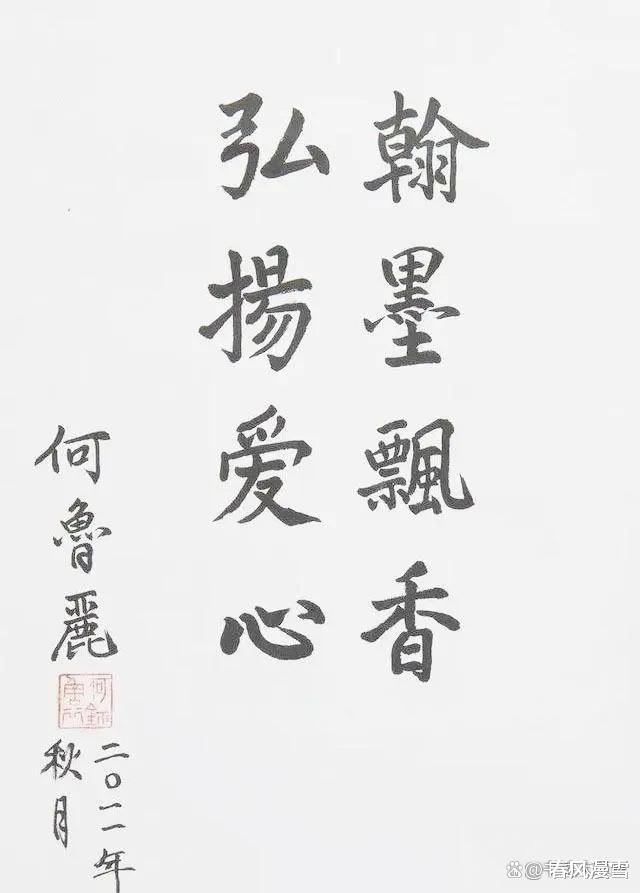 翰墨飄香
弘揚爱心
何魯麗
二〇一一年
秋月
春风漫雪